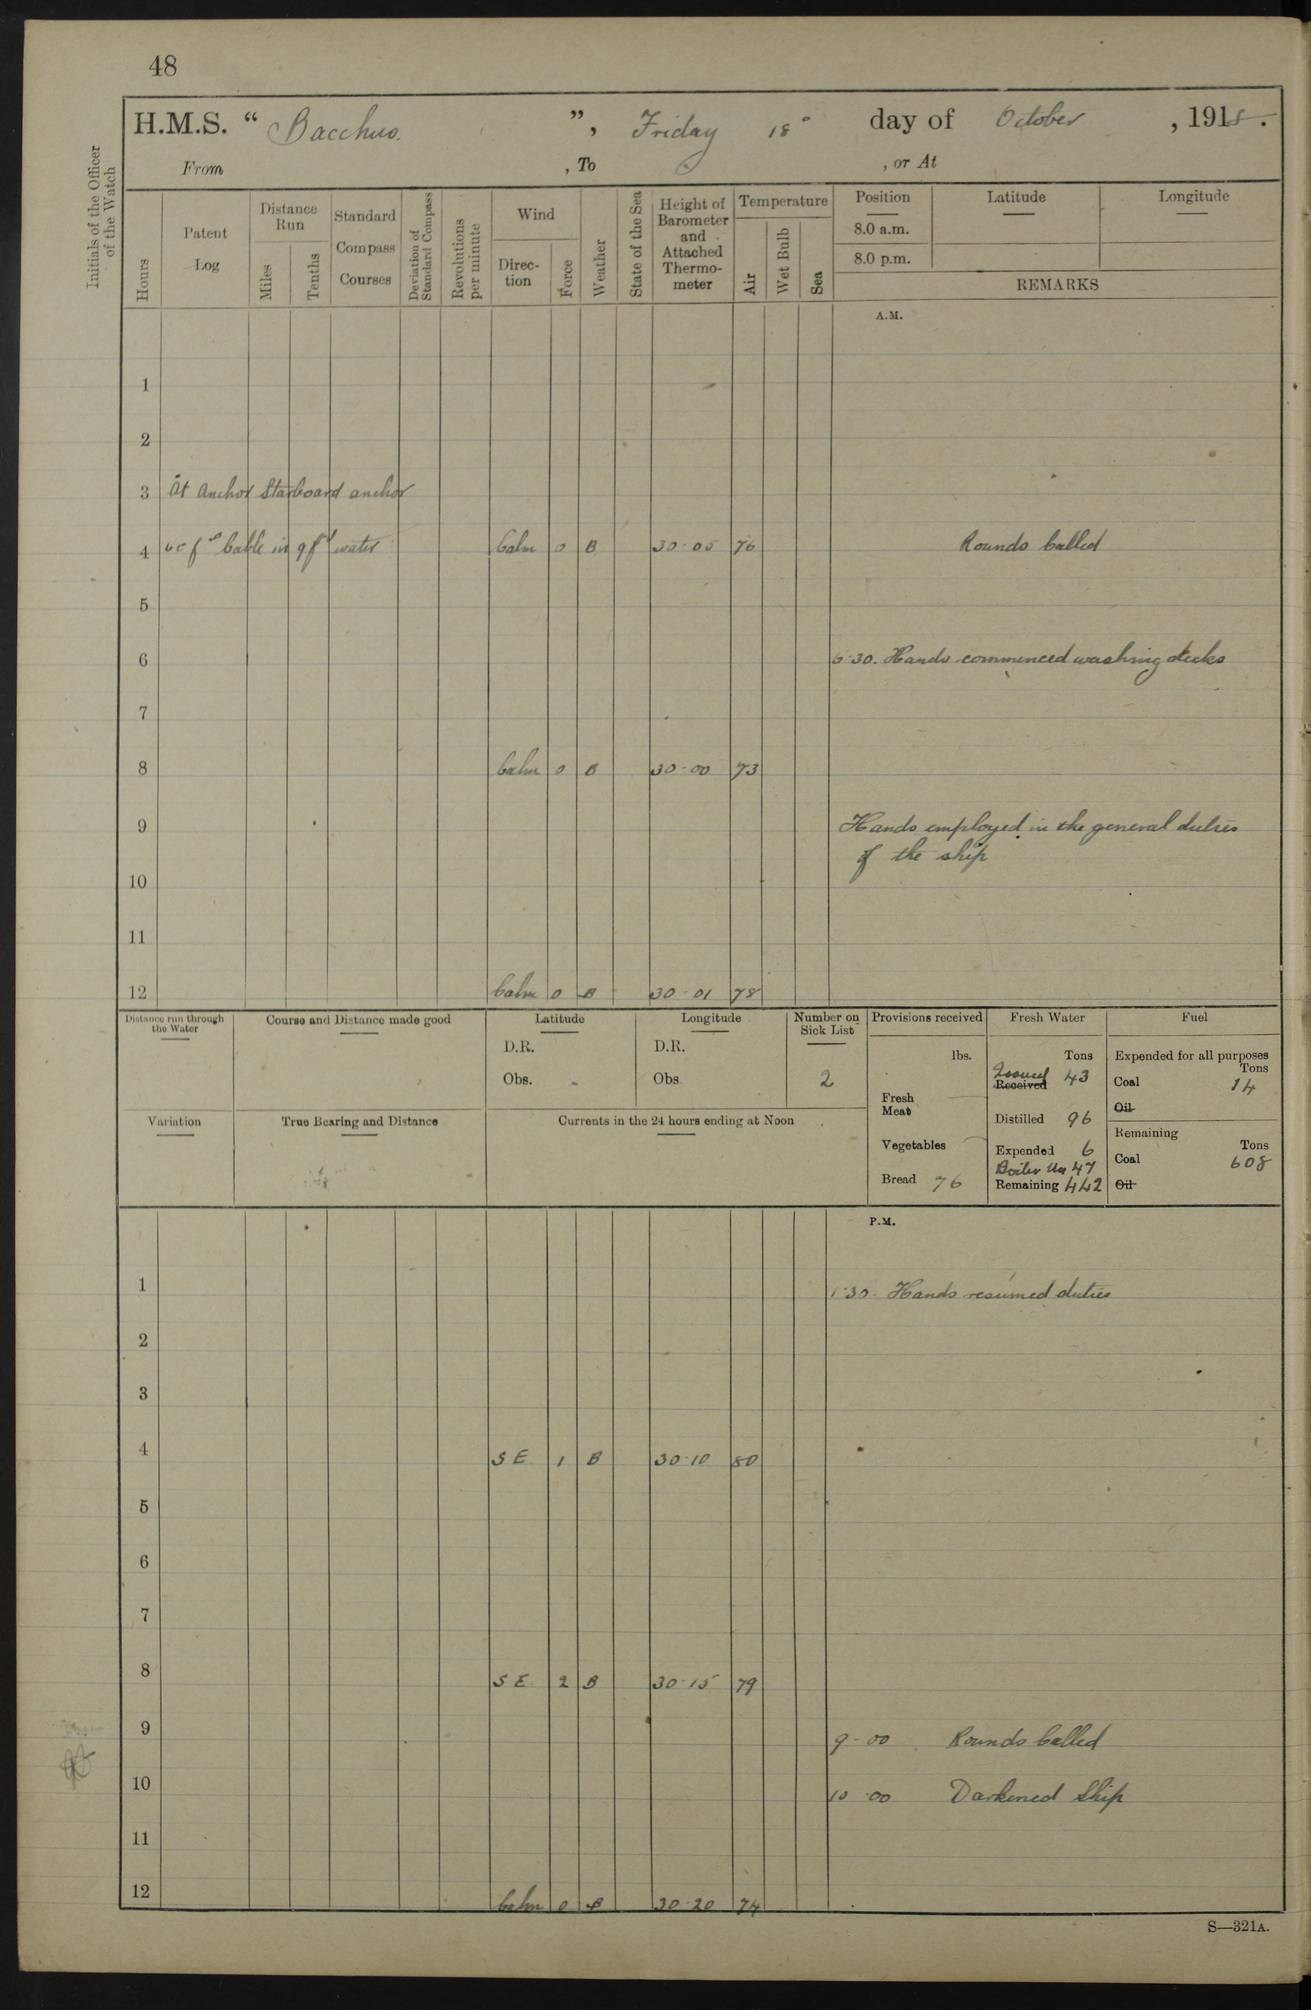 48
H.M.S. “ Bacchus. ”, Friday 18° day of October , 1918.
From , To , or At
Initials of the Officer of the Watch
Hours
Patent Log
Distance Run
Miles
Tenths
Standard Compass Courses
Deviation of Standard Compass
Revolutions per minute
Wind
Direction
Force
Weather
State of the Sea
Height of Barometer and Attached Thermometer
Temperature
Air
Wet Bulb
Sea
Position Latitude Longitude
8.0 a.m.
8.0 p.m.
REMARKS
A.M.
1
2
3 At Anchor Starboard anchor
4 Cable in 9 water Calm 0 B 30·05 76 Rounds Called
5
6 6·30. Hands commenced washing decks
7
8 Calm 0 B 30·00 73
9 Hands employed in the general duties
of the ship
10
11
12 Calm 0 B 30·01 78
Distance run through the Water
Course and Distance made good
Latitude
D.R.
Obs.
Longitude
D.R.
Obs.
Number on Sick List
2
Variation
True Bearing and Distance
Currents in the 24 hours ending at Noon
Provisions received
lbs.
Fresh Meat
Vegetables
Bread 76
Fresh Water
Tons
Issued 43
Received
Distilled 96
Expended 6
Boiler Use 47
Remaining 442
Fuel
Expended for all purposes
Tons
Coal 14
Oil
Remaining
Tons
Coal 608
Oil
P.M.
1 1·30. Hands resumed duties
2
3
4 SE 1 B 30·10 80
5
6
7
8 SE 2 B 30·15 79
9 9-00 Rounds Called
10 10·00 Darkened Ship
11
12 Calm 0 B 30·20 74
S—321A.